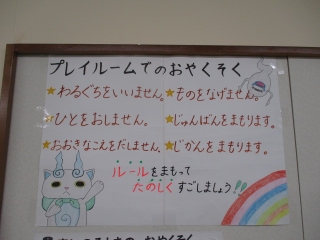 プレイルームでのおやくそく
★わるぐちをいいません。 ★ものをなげません。
★ひとをおしません。 ★じゅんばんをまもります。
★おおきなこえをだしません。 ★じかんをまもります。
ルールをまもって
たのしくすごしましょう!!